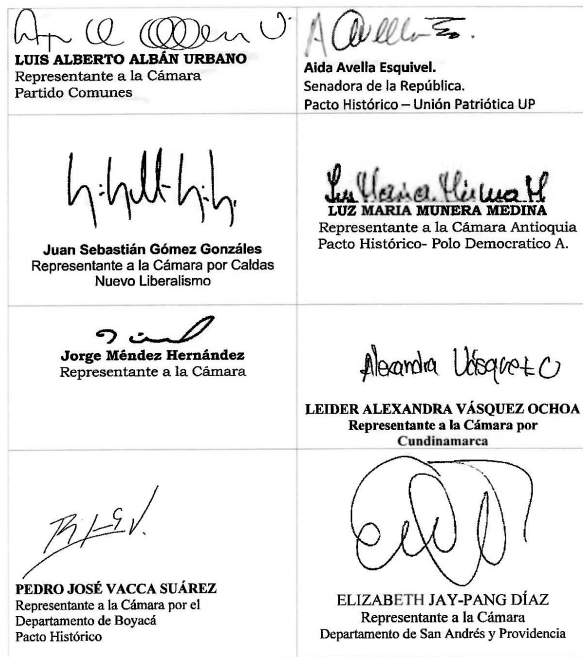 LUIS ALBERTO ALBÁN URBANO
Representante a la Cámara
Partido Comunes
A Avella E.
Aida Avella Esquivel.
Senadora de la República.
Pacto Histórico – Unión Patriótica UP
Juan Sebastián Gómez Gonzáles
Representante a la Cámara por Caldas
Nuevo Liberalismo
Luz Maria Munera M
LUZ MARIA MUNERA MEDINA
Representante a la Cámara Antioquia
Pacto Histórico- Polo Democratico A.
Jorge Méndez Hernández
Representante a la Cámara
Alexandra Vásquez O
LEIDER ALEXANDRA VÁSQUEZ OCHOA
Representante a la Cámara por
Cundinamarca
PEDRO JOSÉ VACCA SUÁREZ
Representante a la Cámara por el
Departamento de Boyacá
Pacto Histórico
ELIZABETH JAY-PANG DÍAZ
Representante a la Cámara
Departamento de San Andrés y Providencia